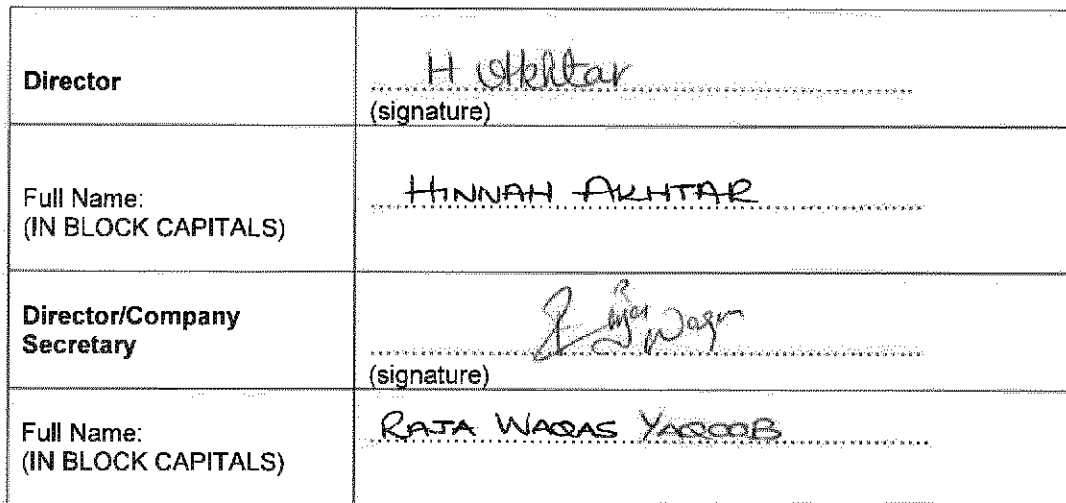 Director
H Akhtar
(signature)
Full Name:
(IN BLOCK CAPITALS)
HINNAH AKHTAR
Director/Company
Secretary
(signature)
Full Name:
(IN BLOCK CAPITALS)
RAJA WAQAS YAQOOB